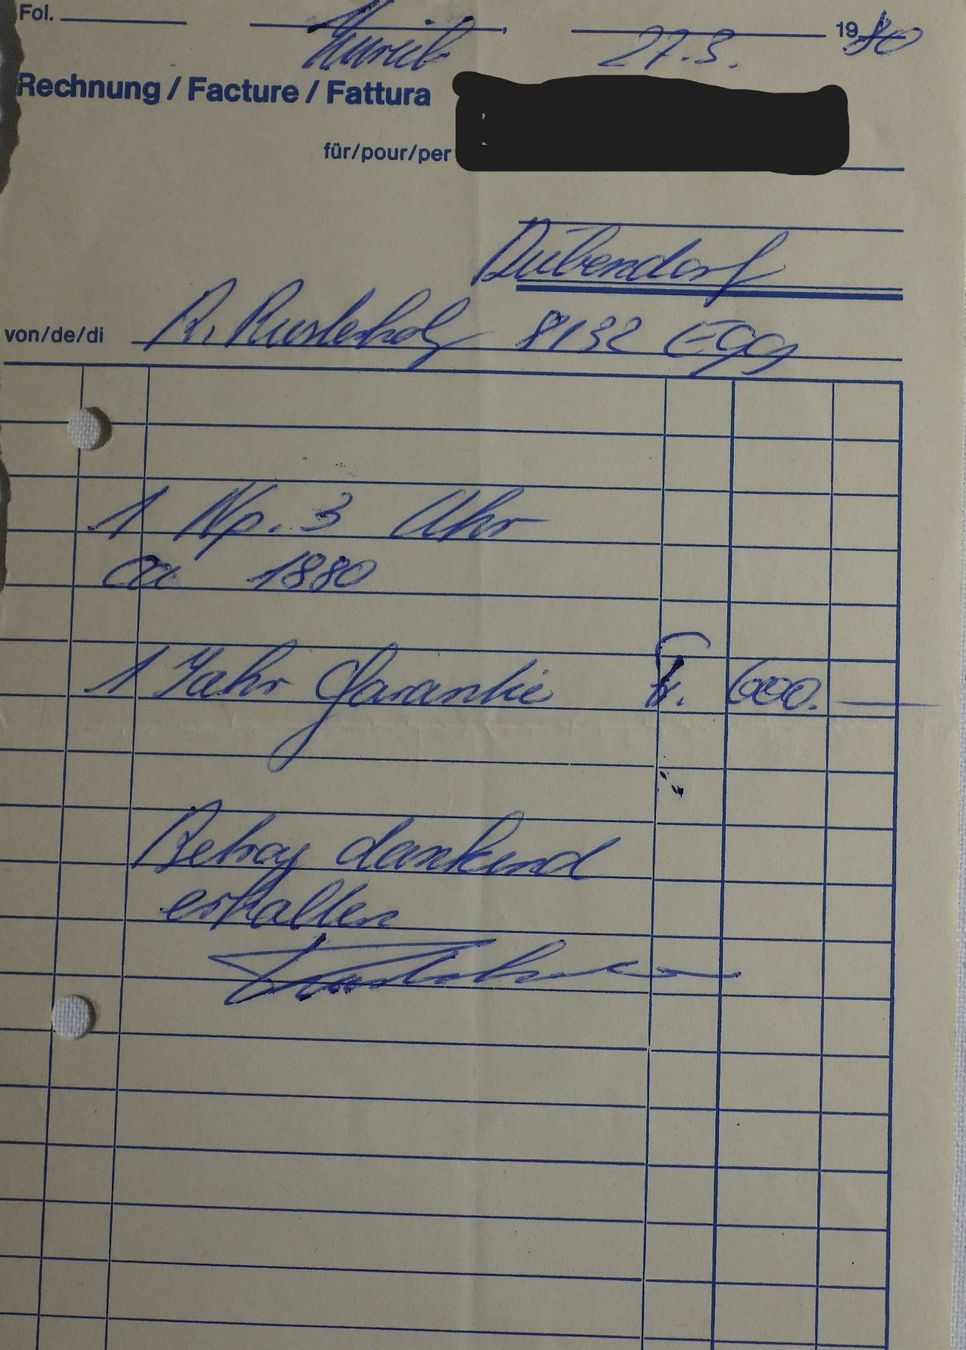 Fol.
Zürich 27.3. 1980
Rechnung / Facture / Fattura
für/pour/per
Dübendorf
von/de/di R. Rusterholz 8132 Egg
1 Np. 3 Uhr
ca 1880
1 Jahr Garantie Fr. 600.—
Betrag dankend
erhalten